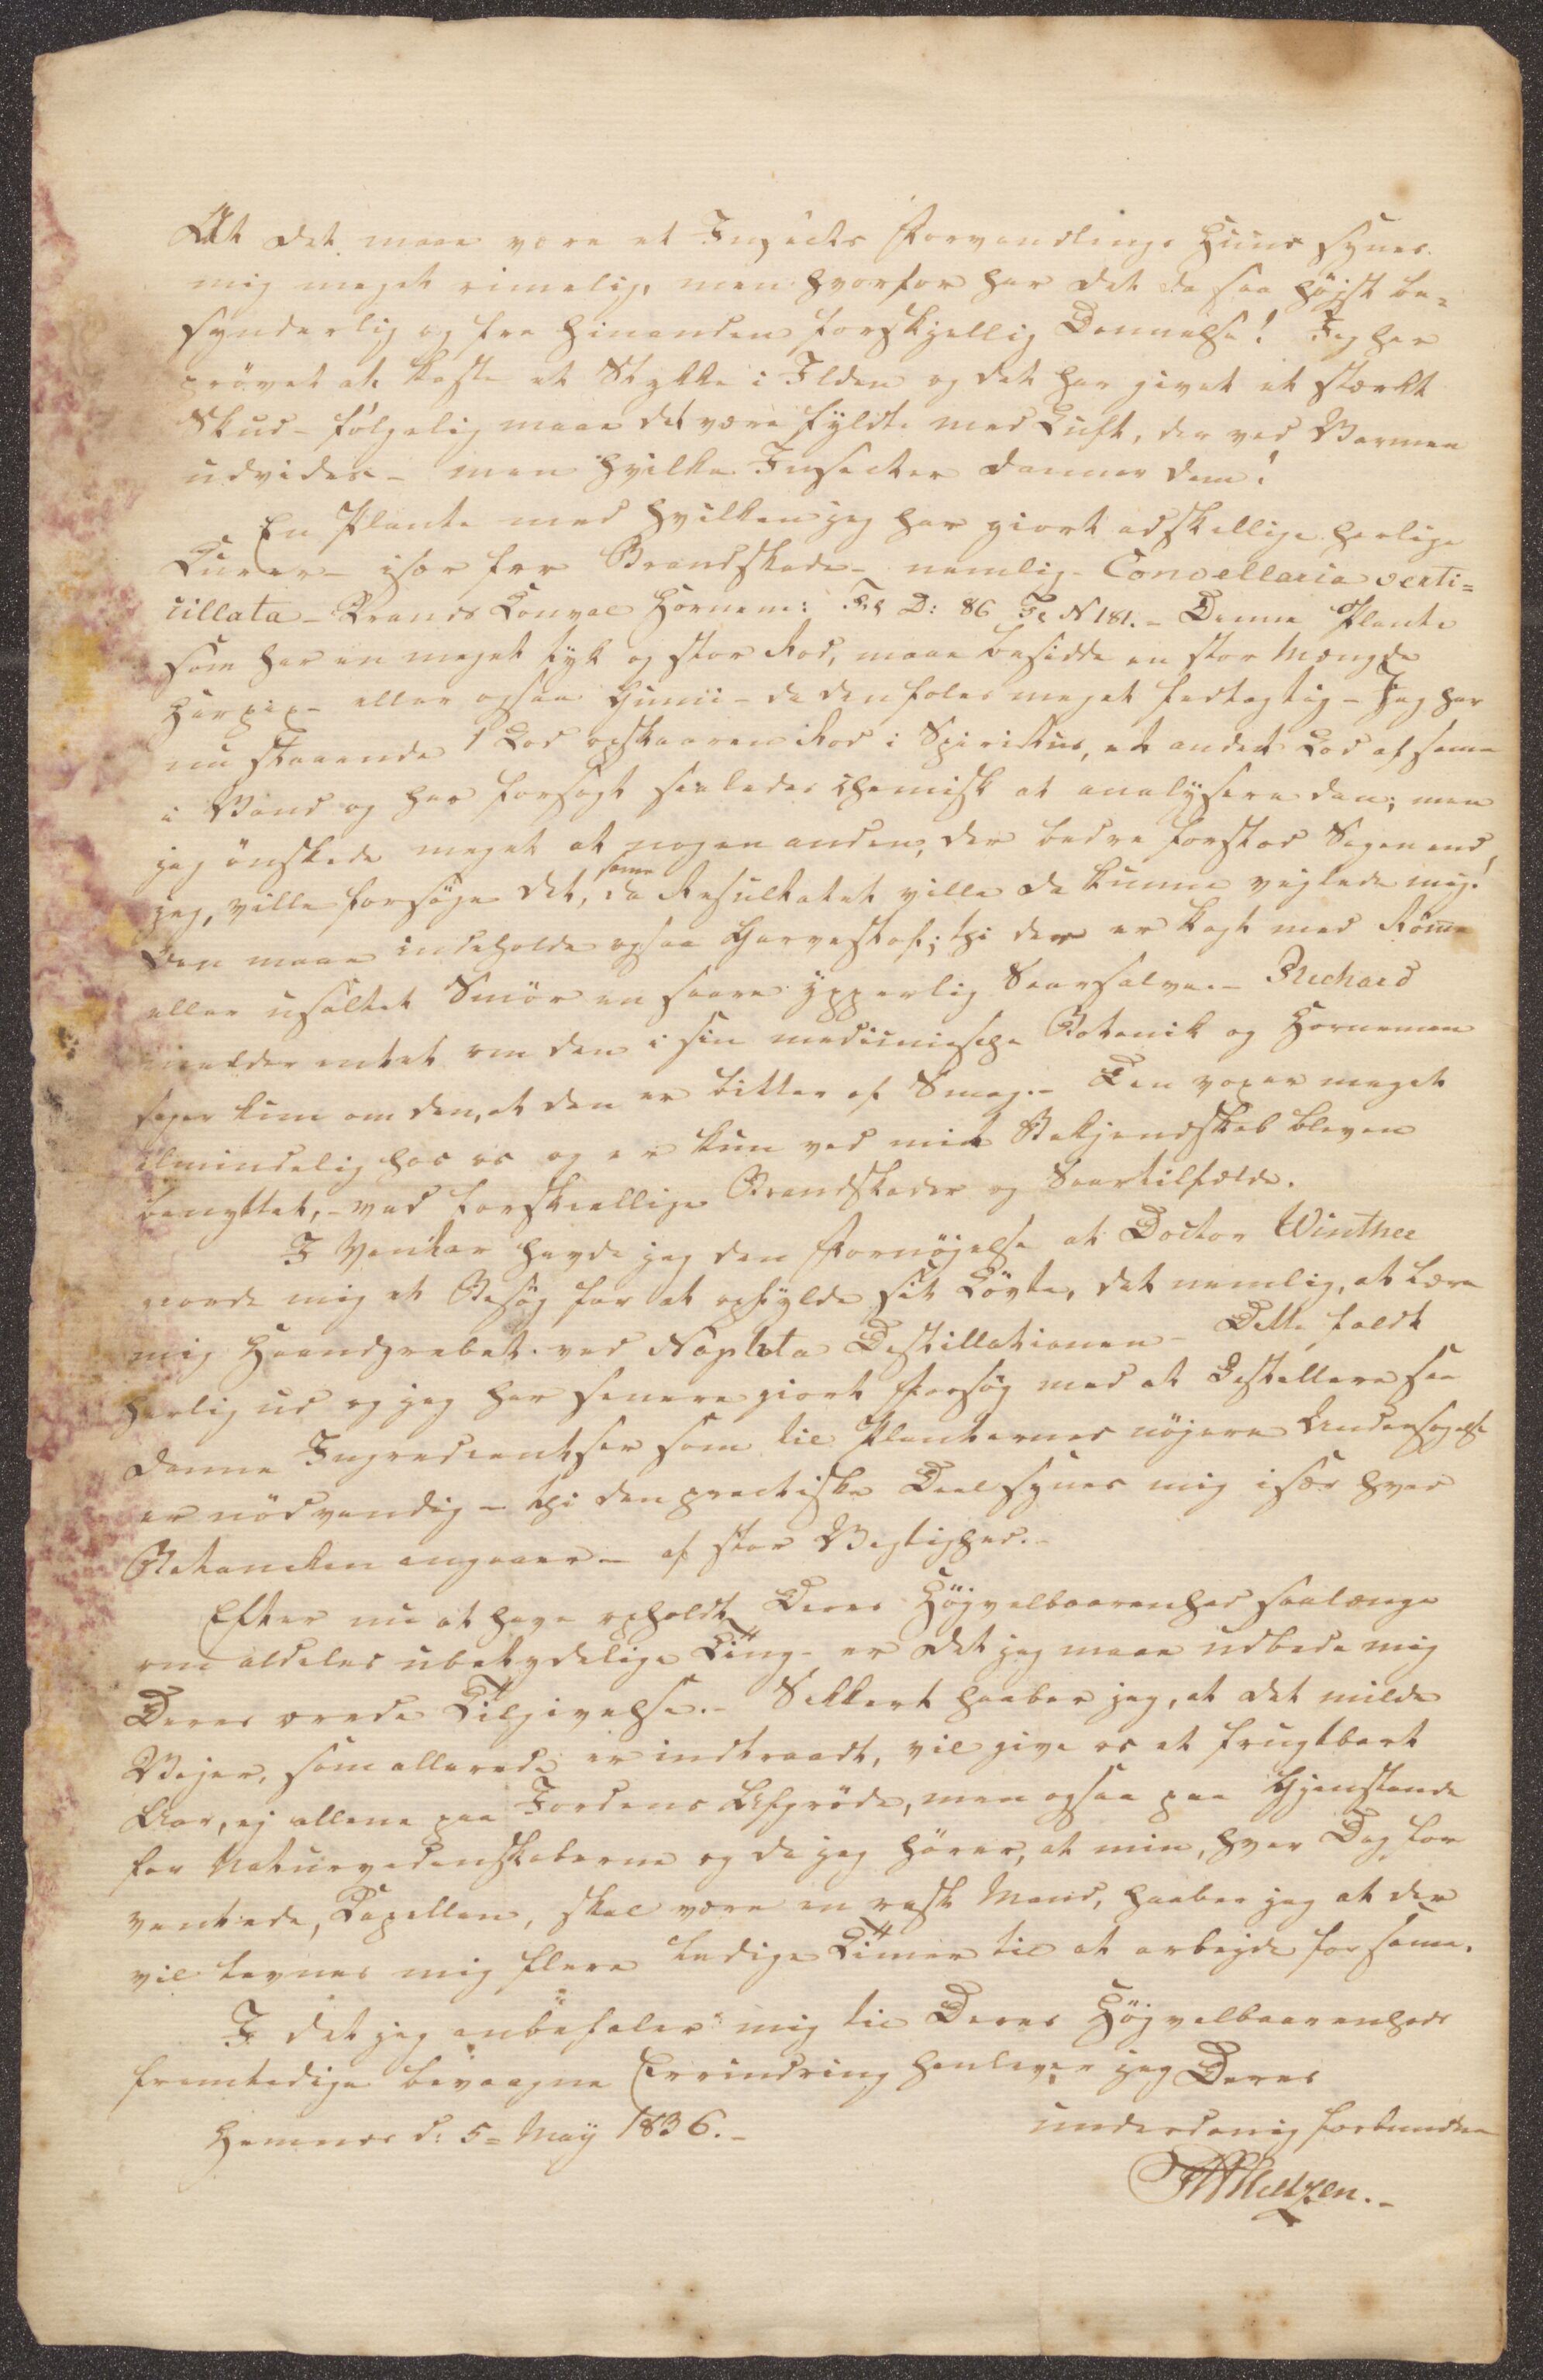 At det maae være et Insects Forvandlings Huus synes
mig meget rimelig, men hvorfor har det da saa højst be-
synderlig og fra hinanden forskjellig Dannelse! Jeg har
prövet at kaste et Stykke i Ilden og det har givet et stærkt
Skud - fölgelig maae det være fyldt med Luft, der ved Varmen
udvides - men hvilke Insecter danner dem!
En Plante med hvilken jeg har giort adskillige herlige
Curer - især for Brandskade - nemlig - Convellaria verti=
cillata - Krands Konval Hornem: Fl D: 86 N 181. - Denne Plante
som har en meget tyk og stor Rod, maae besidde en stor Mængde
Harpix - eller ogsaa Gumi - da den föles meget fedtagtig - Jeg har
nu staaende 1 Lod opskaaren Rod i Spiritus, et andet Lod af samme
i Vand og har forsögt saaledes chemisk at analysere den; men
jeg önskede meget at nogen anden, der bedre forstod Sagen end
jeg, ville forsöge det, da same Resultatet ville da kunne vejlede mig!
Den maae indeholde ogsaa Garvestof; thi den er kogt med Römme
eller usaltet Smör en saare ypperlig Saarsalve. - Richard
melder intet om den i sin medicinische Botanik og Hornemann
siger kun om den, at den er bitter af Smag. - Den voxer meget
almindelig hos os og er kun ved mit Bekjendskab bleven
benyttet, - ved forskiellige Brandskader og Saartilfælde.
I Vinter havde jeg den Fornöjelse at Doctor Winther
giorde mig et Besög for at opfylde sit Lövte, det nemlig, at lære
mig Haandgrebet ved Naphta Destillationen - Dette faldt
herlig ud og jeg har senere giort Forsög med at destillere saa
danne Ingredientser som til Planternes nöjere Undersögelse
er nödvendig - thi den practiske Deel synes mig især hvad
Botaniken angaaer - af stor Vigtighed. -
Efter nu at have opholdt Deres Höjvelbaarenhed saalænge
om aldeles ubetydelige Ting - er det jeg maae udbede mig
Deres ærede Tilgivelse. - Sikkert haaber jeg, at det milde
Vejer, som allerede er indtraadt, vil give os et frugtbart
Aar, ej allene paa Jordens Afgröde, men ogsaa paa Gjenstande
for Naturvidenskaberne og da jeg hörer, at min, hver Dag for
ventede, Capellan, skal være en rask Mand, haaber jeg at der
vil levnes mig flere ledige Timer til at arbejde for same.
I det jeg anbefaler mig til Deres Höjvelbaarenheds
fremtidige bevaagne Errindring henlever jeg Deres
Hemnes d: 5= Maÿ 1836. -
underdanig forbunden
Heltzen. -